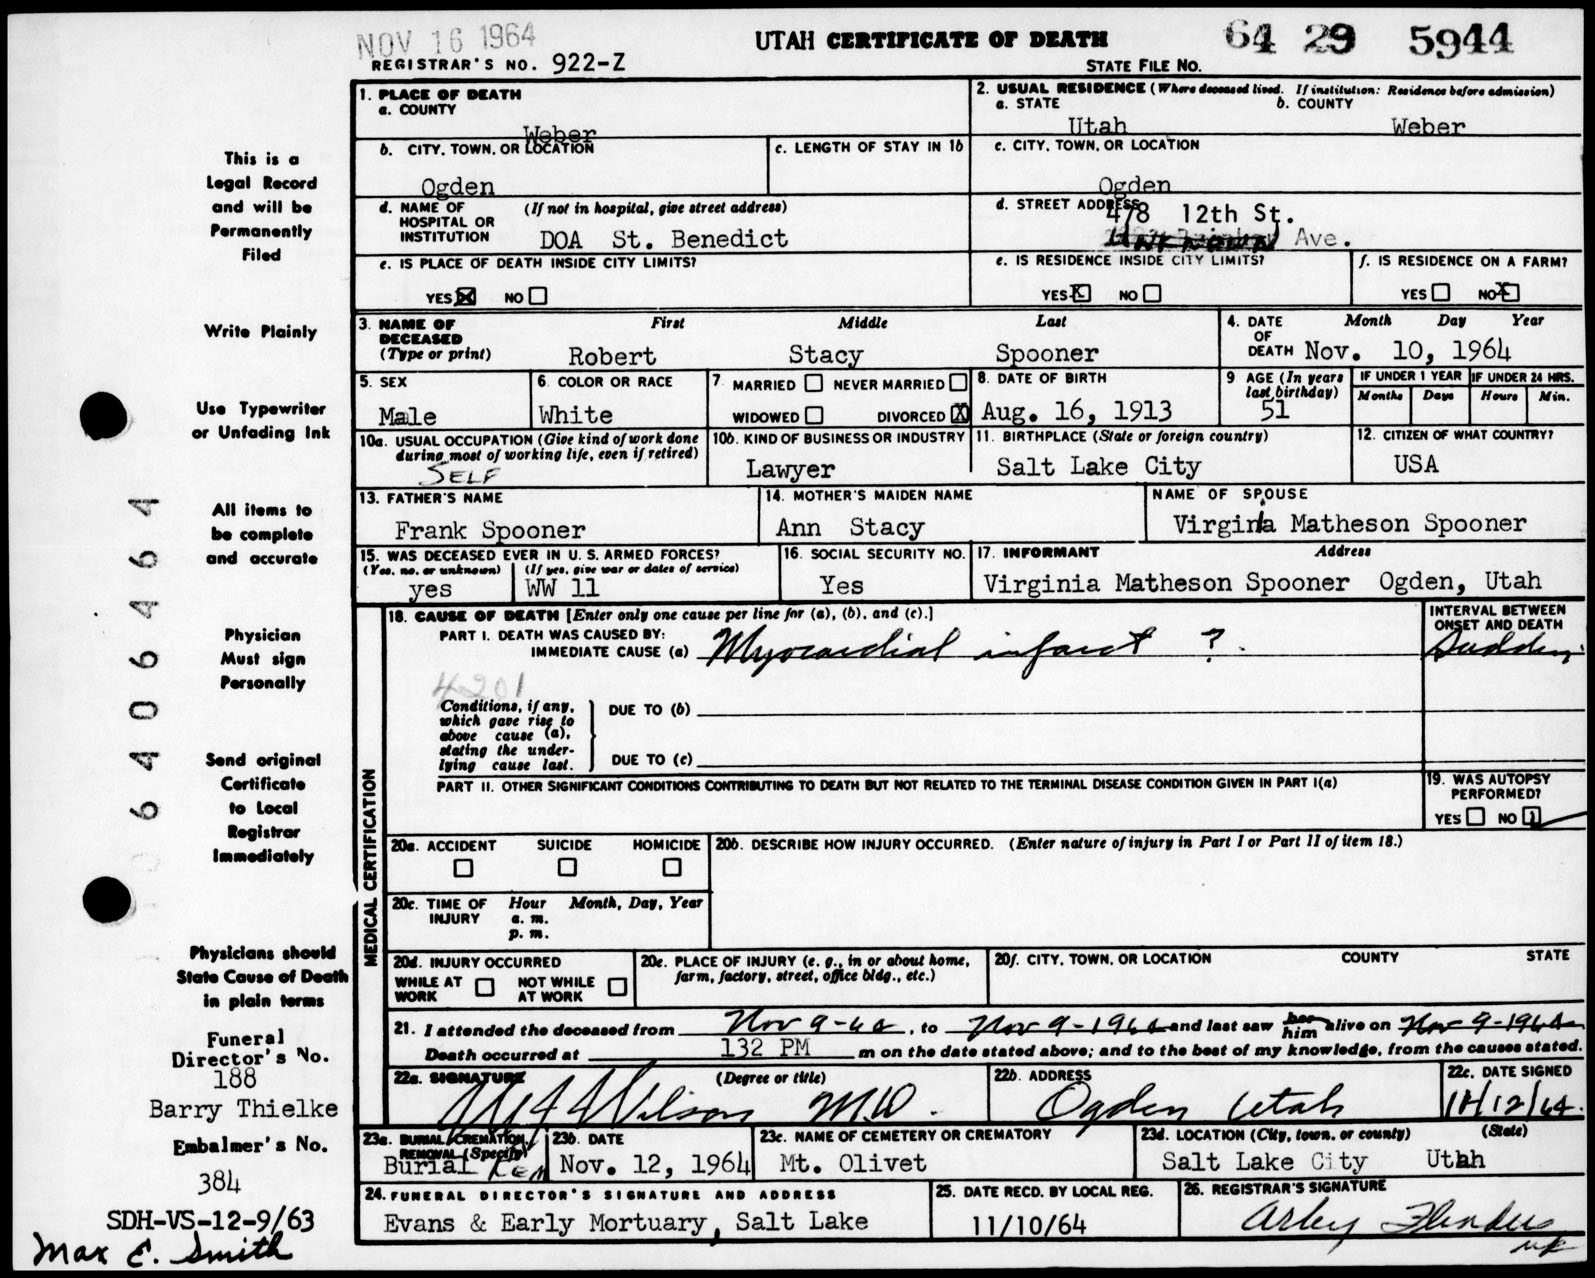 NOV 16 1964
UTAH CERTIFICATE OF DEATH
64 29 5944
REGISTRAR'S NO. 922-Z
STATE FILE NO.
1. PLACE OF DEATH
a. COUNTY
Weber
2. USUAL RESIDENCE (Where deceased lived. If institution: Residence before admission)
a. STATE
Utah
b. COUNTY
Weber
b. CITY, TOWN, OR LOCATION
Ogden
c. LENGTH OF STAY IN 1b
c. CITY, TOWN, OR LOCATION
Ogden
d. NAME OF HOSPITAL OR INSTITUTION
(If not in hospital, give street address)
DOA St. Benedict
d. STREET ADDRESS
478 12th St.
Unknown Ave.
e. IS PLACE OF DEATH INSIDE CITY LIMITS?
YES X NO
e. IS RESIDENCE INSIDE CITY LIMITS?
YES X NO
f. IS RESIDENCE ON A FARM?
YES NO X
3. NAME OF DECEASED
(Type or print)
First Middle Last
Robert Stacy Spooner
4. DATE OF DEATH
Month Day Year
Nov. 10, 1964
5. SEX
Male
6. COLOR OR RACE
White
7. MARRIED NEVER MARRIED
WIDOWED DIVORCED X
8. DATE OF BIRTH
Aug. 16, 1913
9 AGE (In years last birthday)
51
IF UNDER 1 YEAR
Months Days
IF UNDER 24 HRS.
Hours Min.
10a. USUAL OCCUPATION (Give kind of work done
during most of working life, even if retired)
SELF
10b. KIND OF BUSINESS OR INDUSTRY
Lawyer
11. BIRTHPLACE (State or foreign country)
Salt Lake City
12. CITIZEN OF WHAT COUNTRY?
USA
13. FATHER'S NAME
Frank Spooner
14. MOTHER'S MAIDEN NAME
Ann Stacy
NAME OF SPOUSE
Virginia Matheson Spooner
15. WAS DECEASED EVER IN U.S. ARMED FORCES?
(Yes, no, or unknown)
yes
(If yes, give war or dates of service)
WW 11
16. SOCIAL SECURITY NO.
Yes
17. INFORMANT Address
Virginia Matheson Spooner Ogden, Utah
MEDICAL CERTIFICATION
18. CAUSE OF DEATH [Enter only one cause per line for (a), (b), and (c).]
PART I. DEATH WAS CAUSED BY:
IMMEDIATE CAUSE (a) Myocardial infarct ?
INTERVAL BETWEEN ONSET AND DEATH
Sudden
4201
Conditions, if any,
which gave rise to
above cause (a),
stating the under-
lying cause last.
DUE TO (b)
DUE TO (c)
PART II. OTHER SIGNIFICANT CONDITIONS CONTRIBUTING TO DEATH BUT NOT RELATED TO THE TERMINAL DISEASE CONDITION GIVEN IN PART I(a)
19. WAS AUTOPSY PERFORMED?
YES NO
20a. ACCIDENT SUICIDE HOMICIDE
20b. DESCRIBE HOW INJURY OCCURRED. (Enter nature of injury in Part I or Part II of item 18.)
20c. TIME OF INJURY
Hour Month, Day, Year
a. m.
p. m.
20d. INJURY OCCURRED
WHILE AT WORK NOT WHILE AT WORK
20e. PLACE OF INJURY (e. g., in or about home,
farm, factory, street, office bldg., etc.)
20f. CITY, TOWN, OR LOCATION COUNTY STATE
21. I attended the deceased from Nov 9-64, to Nov 9-1964 and last saw her him alive on Nov 9-1964
Death occurred at 132 PM m on the date stated above; and to the best of my knowledge, from the causes stated.
22a. SIGNATURE (Degree or title)
Wilson M.D.
22b. ADDRESS
Ogden Utah
22c. DATE SIGNED
11/12/64.
23a. BURIAL, CREMATION, REMOVAL (Specify)
Burial Rem
23b. DATE
Nov. 12, 1964
23c. NAME OF CEMETERY OR CREMATORY
Mt. Olivet
23d. LOCATION (City, town, or county) (State)
Salt Lake City Utah
24. FUNERAL DIRECTOR'S SIGNATURE AND ADDRESS
Evans & Early Mortuary, Salt Lake
25. DATE RECD. BY LOCAL REG.
11/10/64
26. REGISTRAR'S SIGNATURE
This is a
Legal Record
and will be
Permanently
Filed
Write Plainly
Use Typewriter
or Unfading Ink
All items to
be complete
and accurate
Physician
Must sign
Personally
Send original
Certificate
to Local
Registrar
Immediately
Physicians should
State Cause of Death
in plain terms
Funeral
Director's No.
188
Barry Thielke
Embalmer's No.
384
SDH-VS-12-9/63
Max E. Smith
6406464